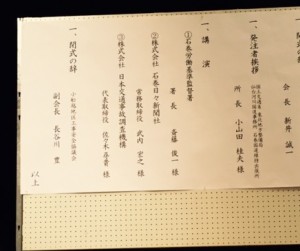 会長 新井 誠一
一、発注者挨拶
所長 小山田 桂夫 様
一、講演
①石巻労働基準監督署
署長 斎藤 俊一 様
②株式会社 石巻日々新聞社
常務取締役 武内 宏之 様
③株式会社 日本交通事故調査機構
代表取締役 佐々木 尋貴 様
一、閉式の辞
小船越地区工事安全協議会
副会長 長谷川 豊
以上